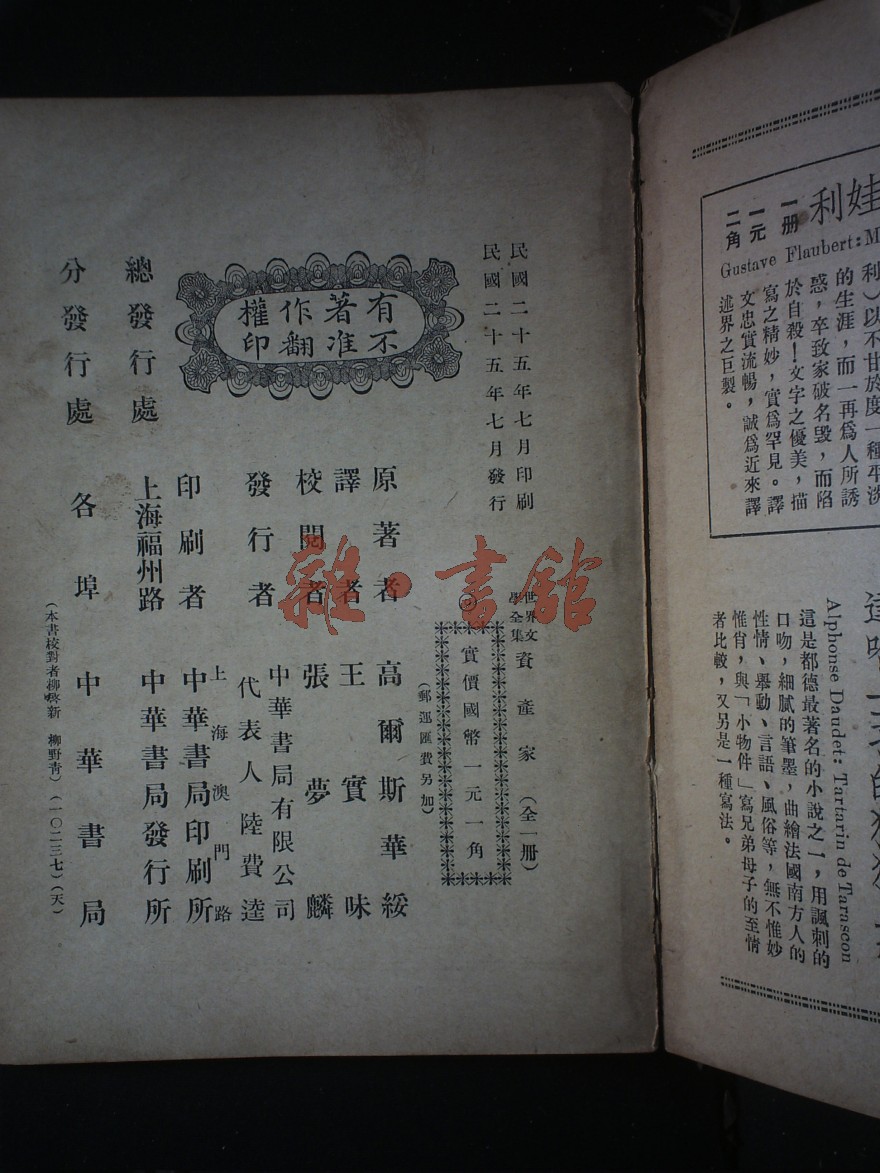 民國二十五年七月印刷
民國二十五年七月發行
世界文學全集 資產家 （全一册）
實價國幣一元一角
（郵運匯費另加）
有著作權
不准翻印
原著者 高爾斯華綏
譯者 王實味
校閱者 張夢麟
發行者 中華書局有限公司
代表人 陸費逵
印刷者 上海澳門路
中華書局印刷所
總發行處 上海福州路 中華書局發行所
分發行處 各埠中華書局
（本書校對者柳啓新 柳野青）（一〇二三七）（天）
雜·書館
娃利
一册
一元
二角
Gustave Flaubert: M
利）以不甘於度一種平淡
的生涯，而一再爲人所誘
惑，卒致家破名毀，而陷
於自殺！文字之優美，描
寫之精妙，實爲罕見。譯
文忠實流暢，誠爲近來譯
述界之巨製。
Alphonse Daudet: Tartarin de Tarascon
這是都德最著名的小說之一，用諷刺的
口吻，細膩的筆墨，曲繪法國南方人的
性情、舉動、言語、風俗等，無不惟妙
惟肖，與「小物件」寫兄弟母子的至情
者比較，又另是一種寫法。